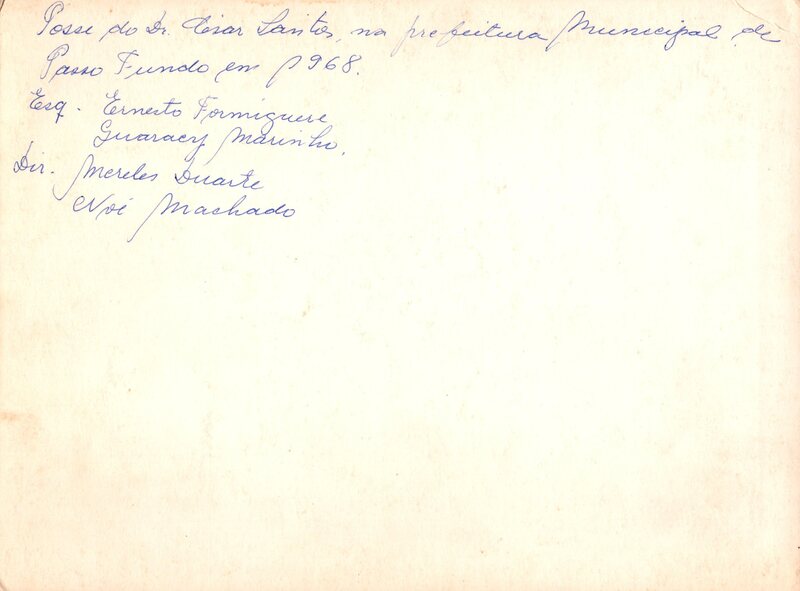 Posse do Dr. César Santos, na prefeitura Municipal de
Passo Fundo em 1968.
Esq. Ernesto Formiguere
Guaracy Marinho.
Dir. Mereles Duarte
Noé Machado